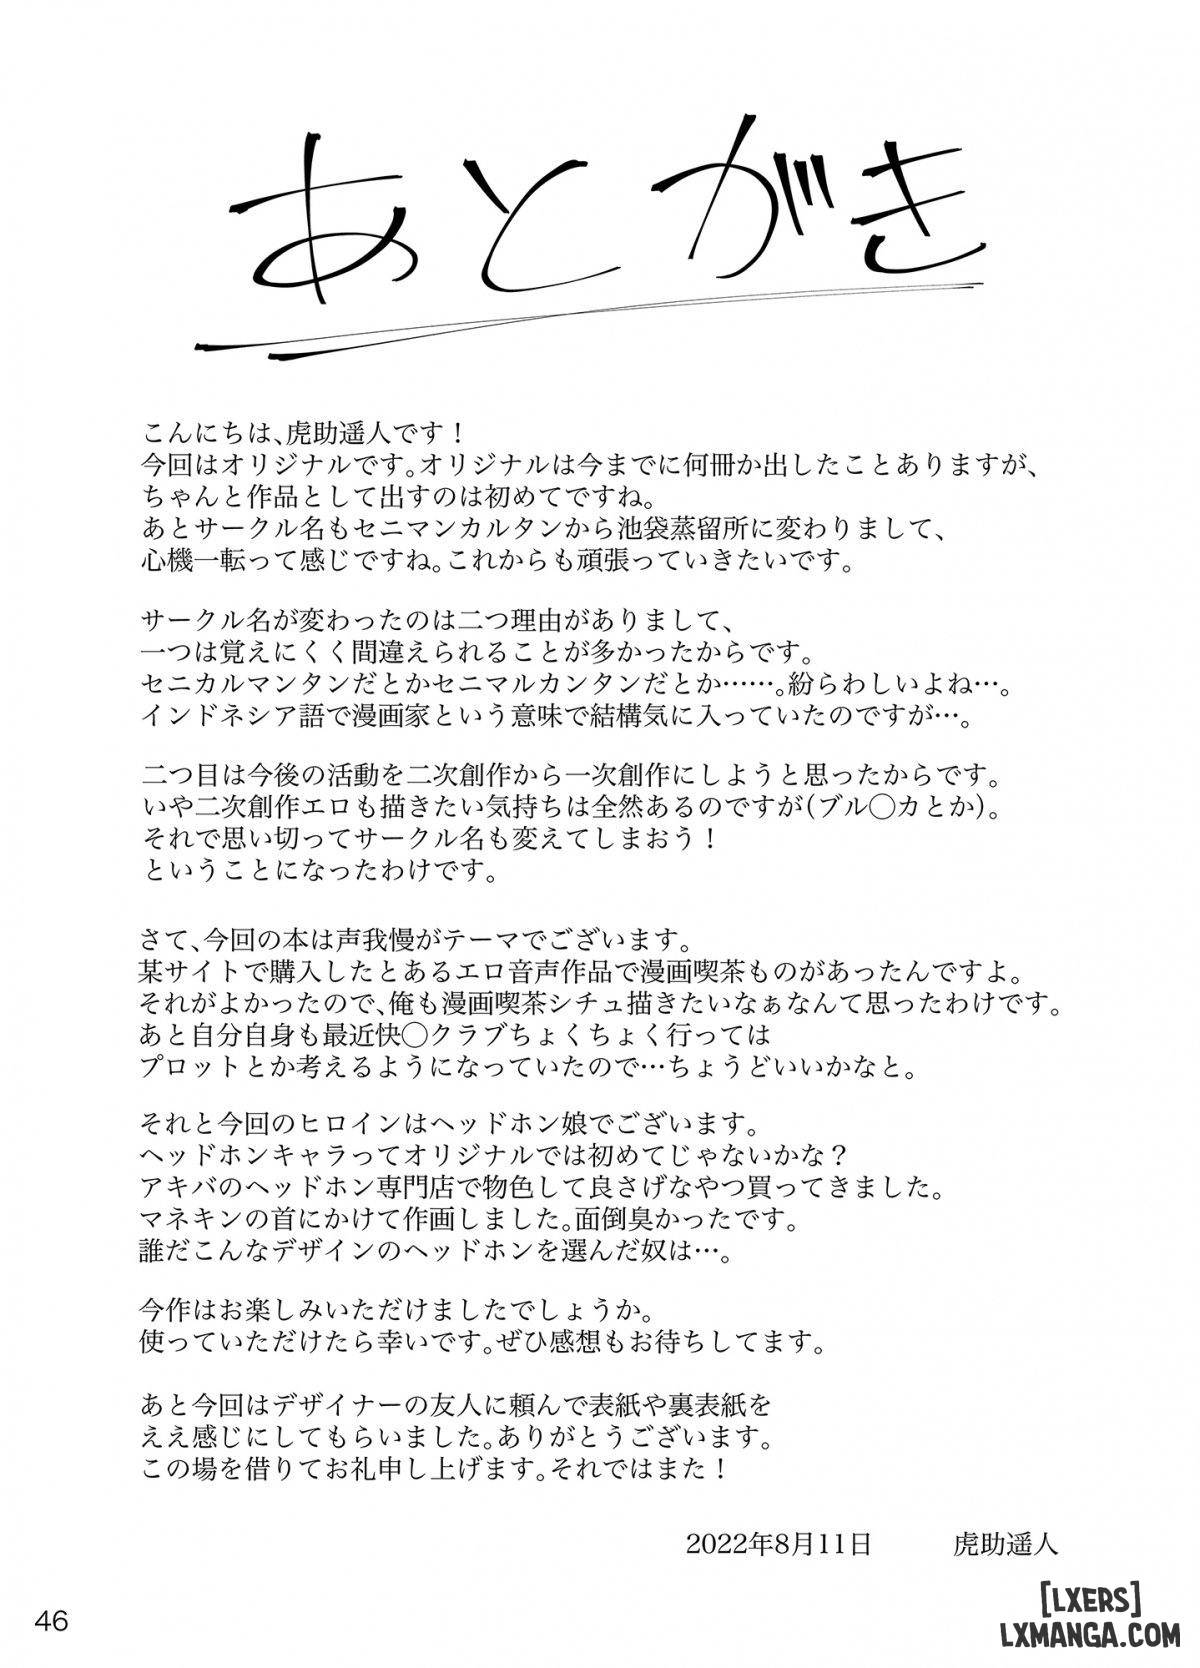 あとがき
こんにちは、虎助遥人です！
今回はオリジナルです。オリジナルは今までに何冊か出したことありますが、
ちゃんと作品として出すのは初めてですね。
あとサークル名もセニマンカルタンから池袋蒸留所に変わりまして、
心機一転って感じですね。これからも頑張っていきたいです。
サークル名が変わったのは二つ理由がありまして、
一つは覚えにくく間違えられることが多かったからです。
セニカルマンタンだとかセニマルカンタンだとか……。紛らわしいよね…。
インドネシア語で漫画家という意味で結構気に入っていたのですが…。
二つ目は今後の活動を二次創作から一次創作にしようと思ったからです。
いや二次創作エロも描きたい気持ちは全然あるのですが(ブル◯カとか)。
それで思い切ってサークル名も変えてしまおう！
ということになったわけです。
さて、今回の本は声我慢がテーマでございます。
某サイトで購入したとあるエロ音声作品で漫画喫茶ものがあったんですよ。
それがよかったので、俺も漫画喫茶シチュ描きたいなぁなんて思ったわけです。
あと自分自身も最近快◯クラブちょくちょく行っては
プロットとか考えるようになっていたので…ちょうどいいかなと。
それと今回のヒロインはヘッドホン娘でございます。
ヘッドホンキャラってオリジナルでは初めてじゃないかな？
アキバのヘッドホン専門店で物色して良さげなやつ買ってきました。
マネキンの首にかけて作画しました。面倒臭かったです。
誰だこんなデザインのヘッドホンを選んだ奴は…。
今作はお楽しみいただけましたでしょうか。
使っていただけたら幸いです。ぜひ感想もお待ちしてます。
あと今回はデザイナーの友人に頼んで表紙や裏表紙を
ええ感じにしてもらいました。ありがとうございます。
この場を借りてお礼申し上げます。それではまた！
2022年8月11日 虎助遥人
46
[LXERS]
LXMANGA.COM